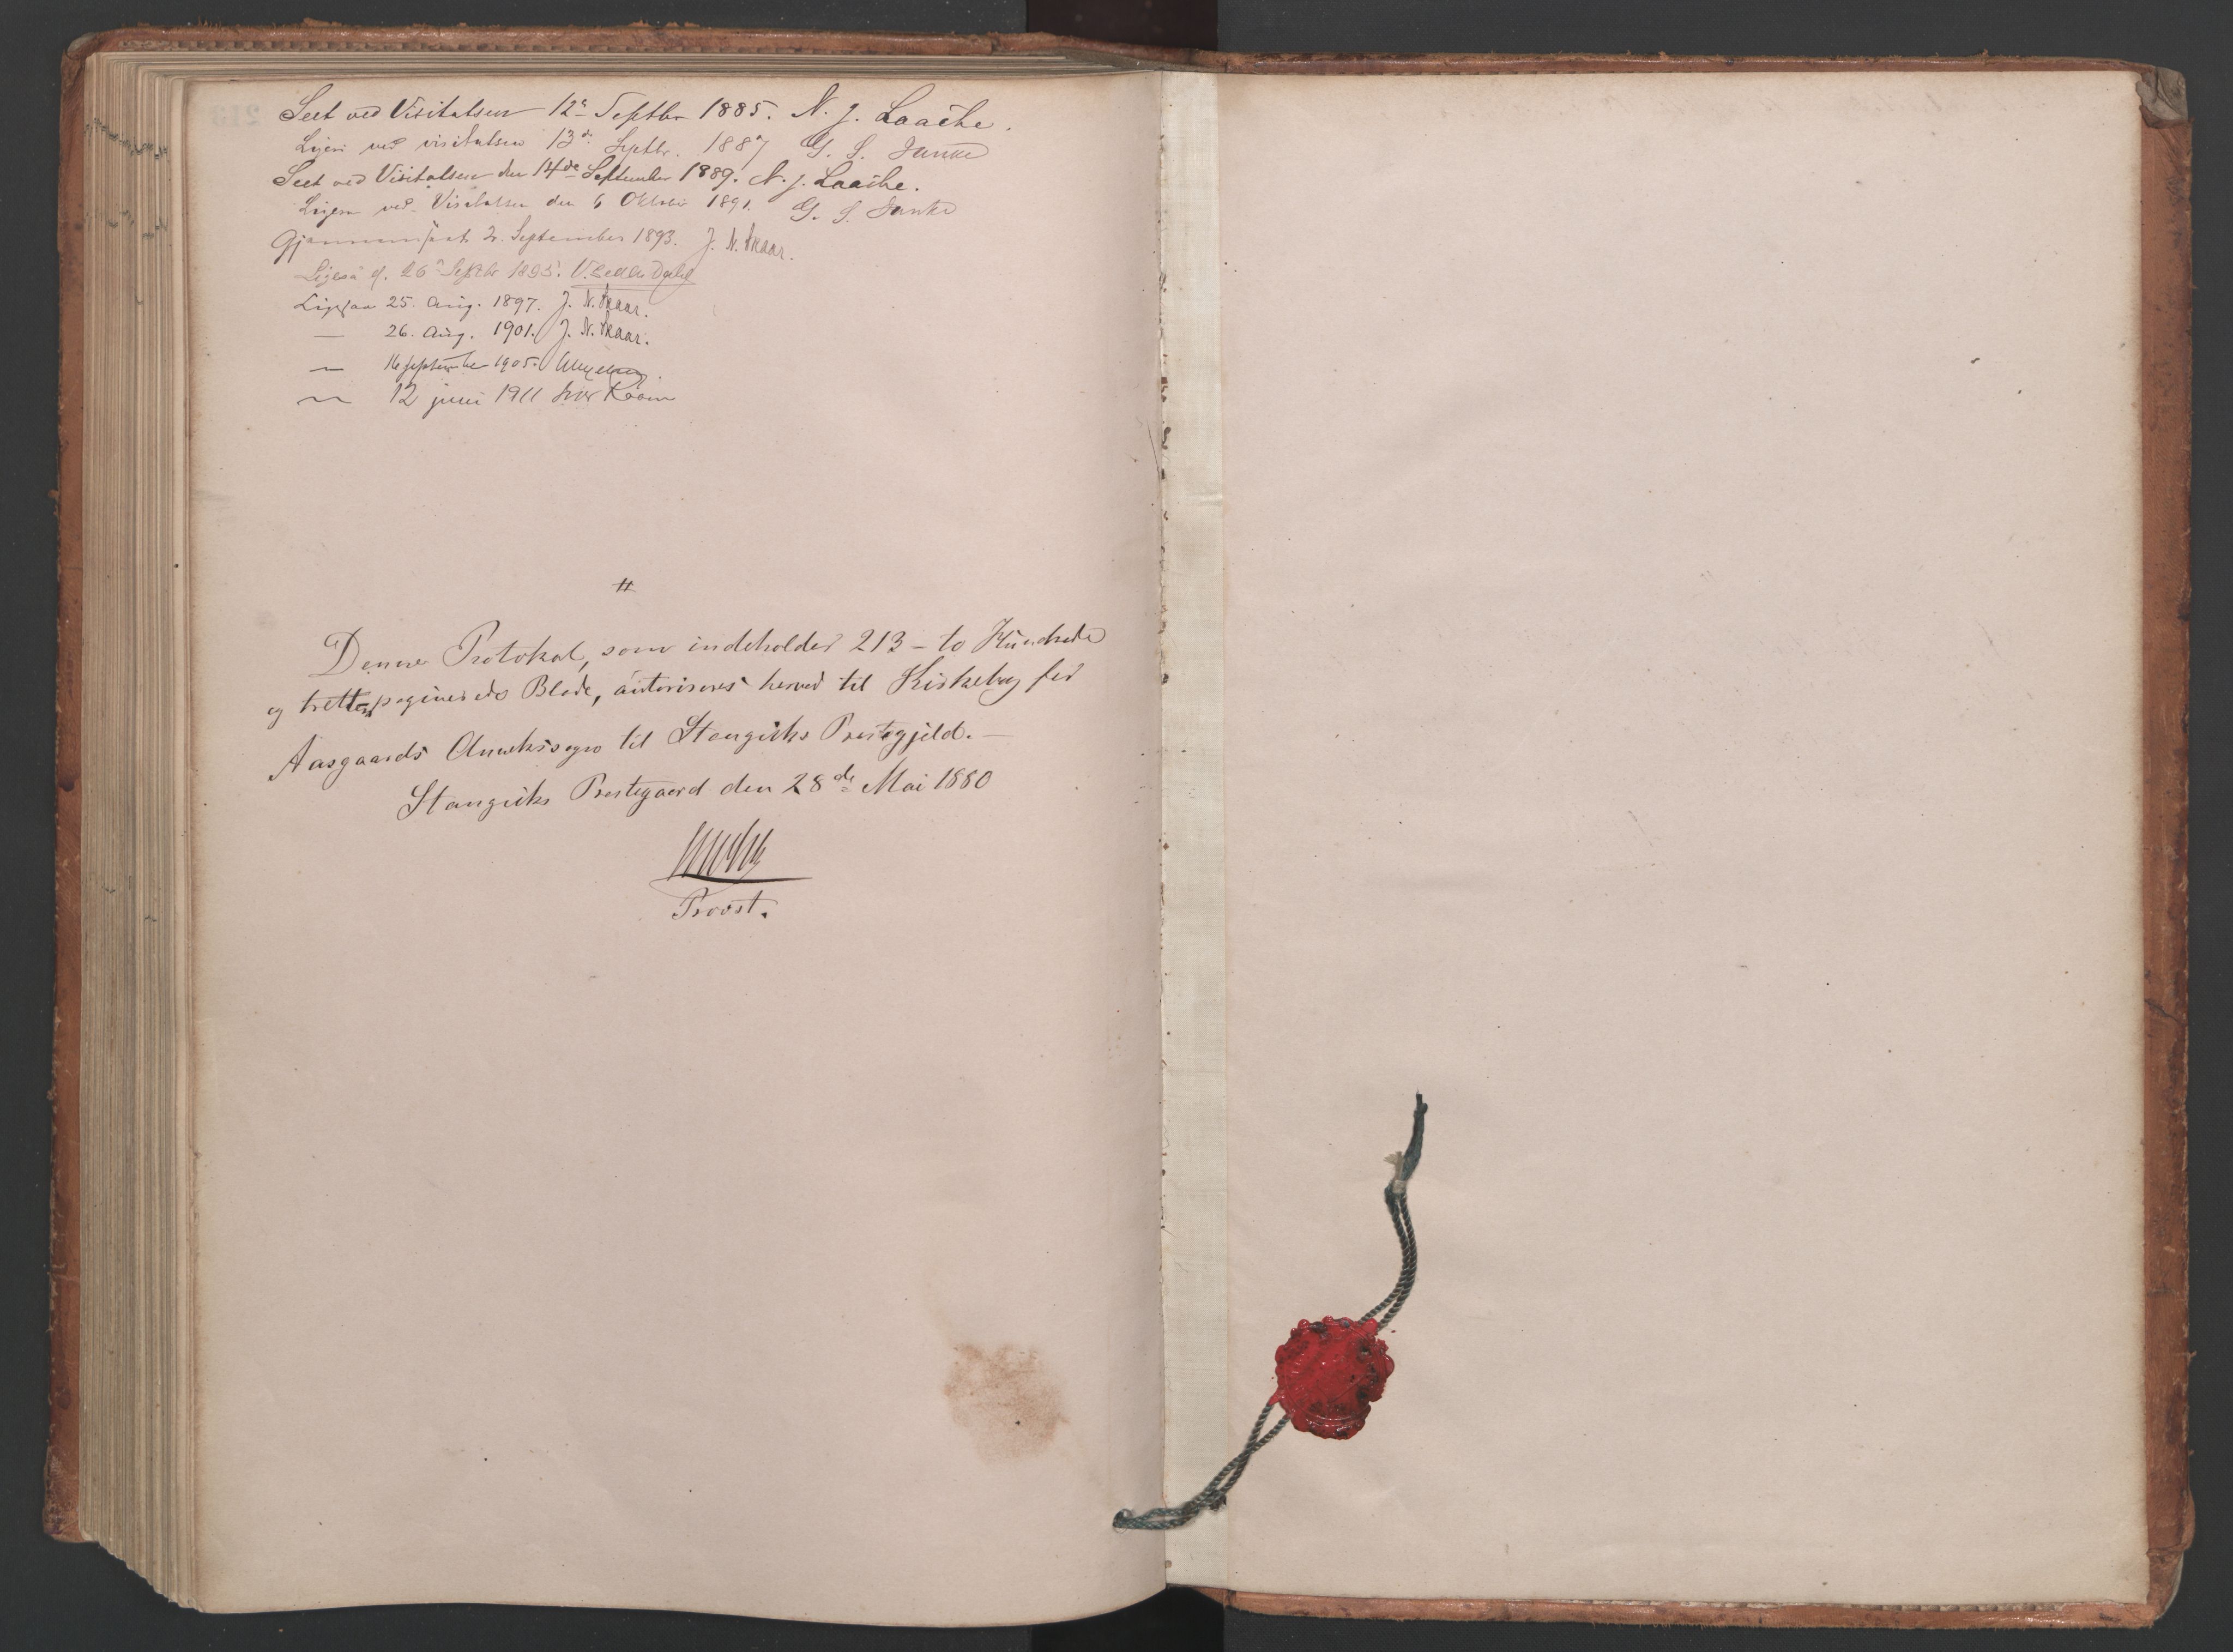 Seet ved Visitatsen 12te Septbr 1885. N. J. Laache.
Ligesaa ved visitatsen 13de Septbr. 1887 G. S. Junke
Seet ved Visitatsen den 14de September 1889. N. J. Laache.
Ligesaa ved Visitatsen den 6 Oktober 1891. G. S. Junke
Gjennemseet 2. September 1893. J. N. Skaar.
Ligesaa d. 26de Septbr 1895.
Ligesaa 25. Aug. 1897. J. N. Skaar.
— 26. Aug. 1901. J. N. Skaar.
— 16 september 1905.
— 12 juni 1911
#
Denne Protokol, som indeholder 213 – to Hundrede
og tretten paginerede Blade, autoriseres herved til Kirkebog for
Aasgaards Annekssogn til Stangviks Prestegjeld. —
Stangviks Prestegaard den 28de Mai 1880
Provst.
213